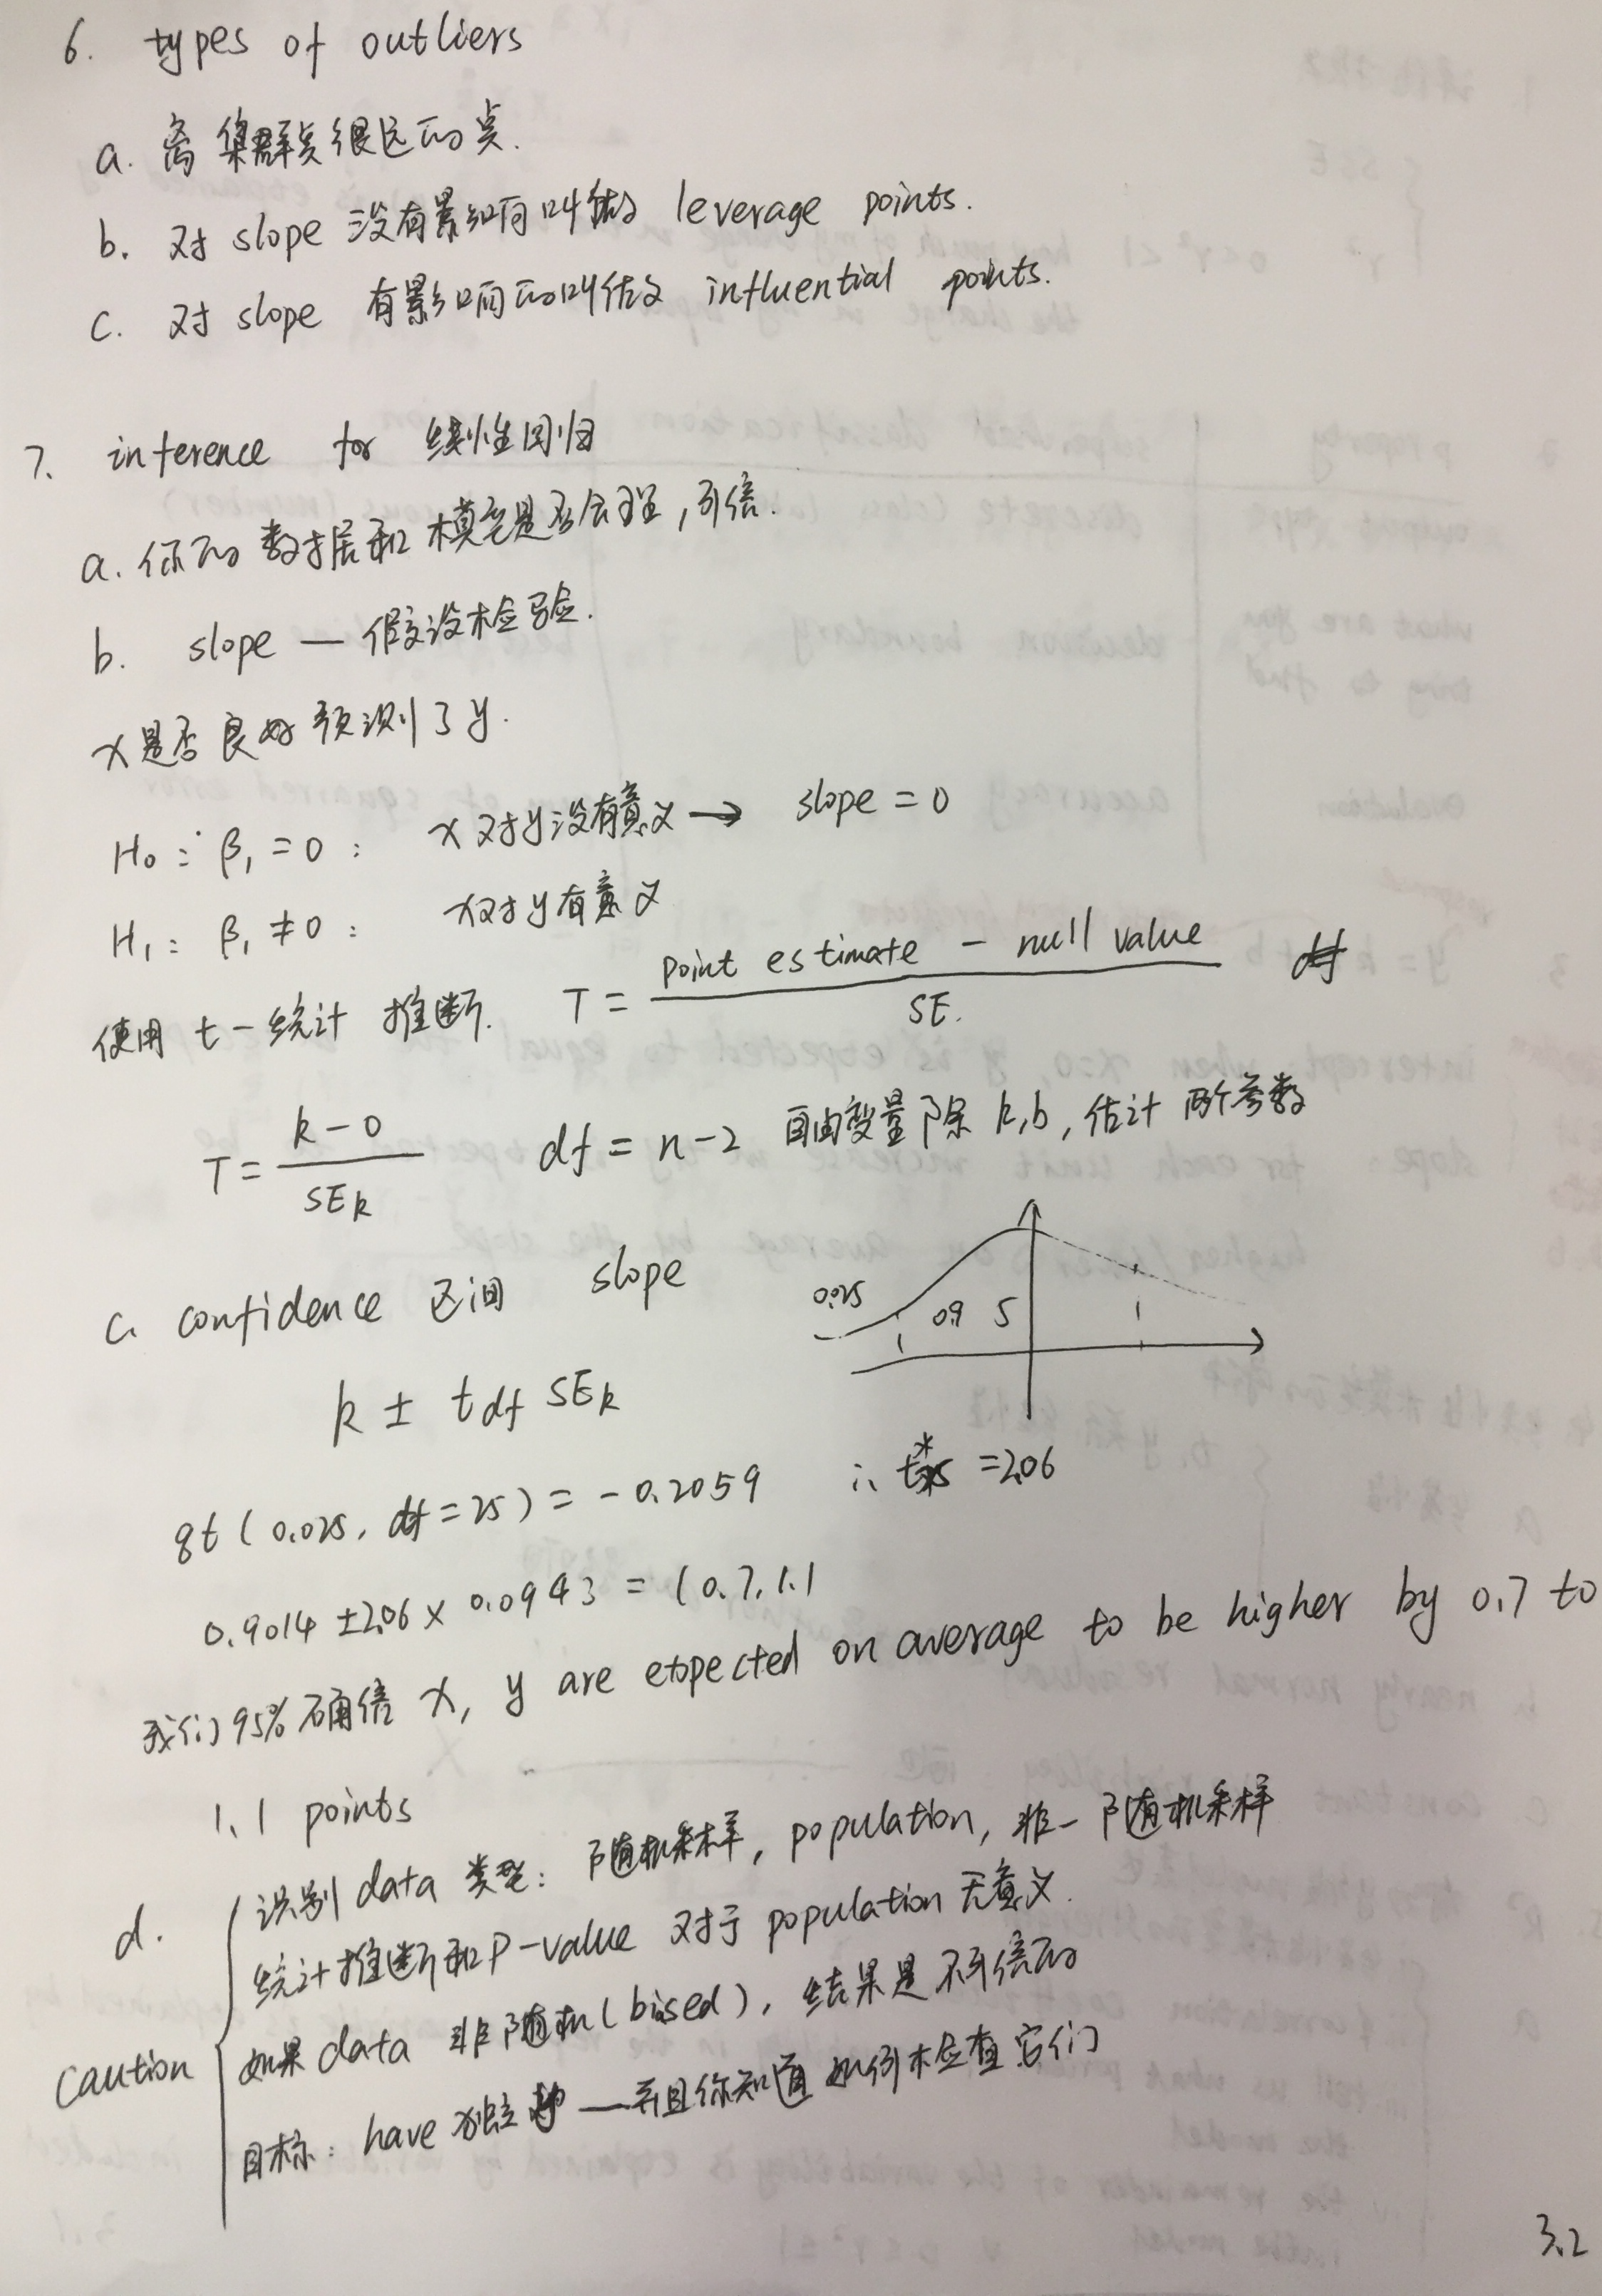 6. types of outliers
a. 离集群点很远的点.
b. 对 slope 没有影响叫做 leverage points.
c. 对 slope 有影响的叫做 influential points.
7. inference for 线性回归
a. 你的数据和模型是否合理,可信.
b. slope — 假设检验.
x是否良好预测了y.
H₀: β₁ = 0 : x对y没有意义 → slope = 0
H₁: β₁ ≠ 0 : x对y有意义
使用 t-统计推断. T = (point estimate - null value) / SE. df
T = (k-0) / SEk df = n-2 自由变量除 k,b,估计两个参数
c. confidence 区间 slope
0.025 0.9 5
k ± tdf SEk
qt(0.025, df=25) = -0.2059 ∴ t*25 = 2.06
0.9014 ± 2.06 × 0.0943 = (0.7, 1.1
我们95%确信 x, y are expected on average to be higher by 0.7 to
1.1 points
d. 识别 data 类型: 随机采样, population, 非-随机采样
统计推断和P-value 对于 population 无意义.
caution 如果 data 非随机(biased), 结果是不可信的
目标: have 独立 —并且你知道如何检查它们
3.2